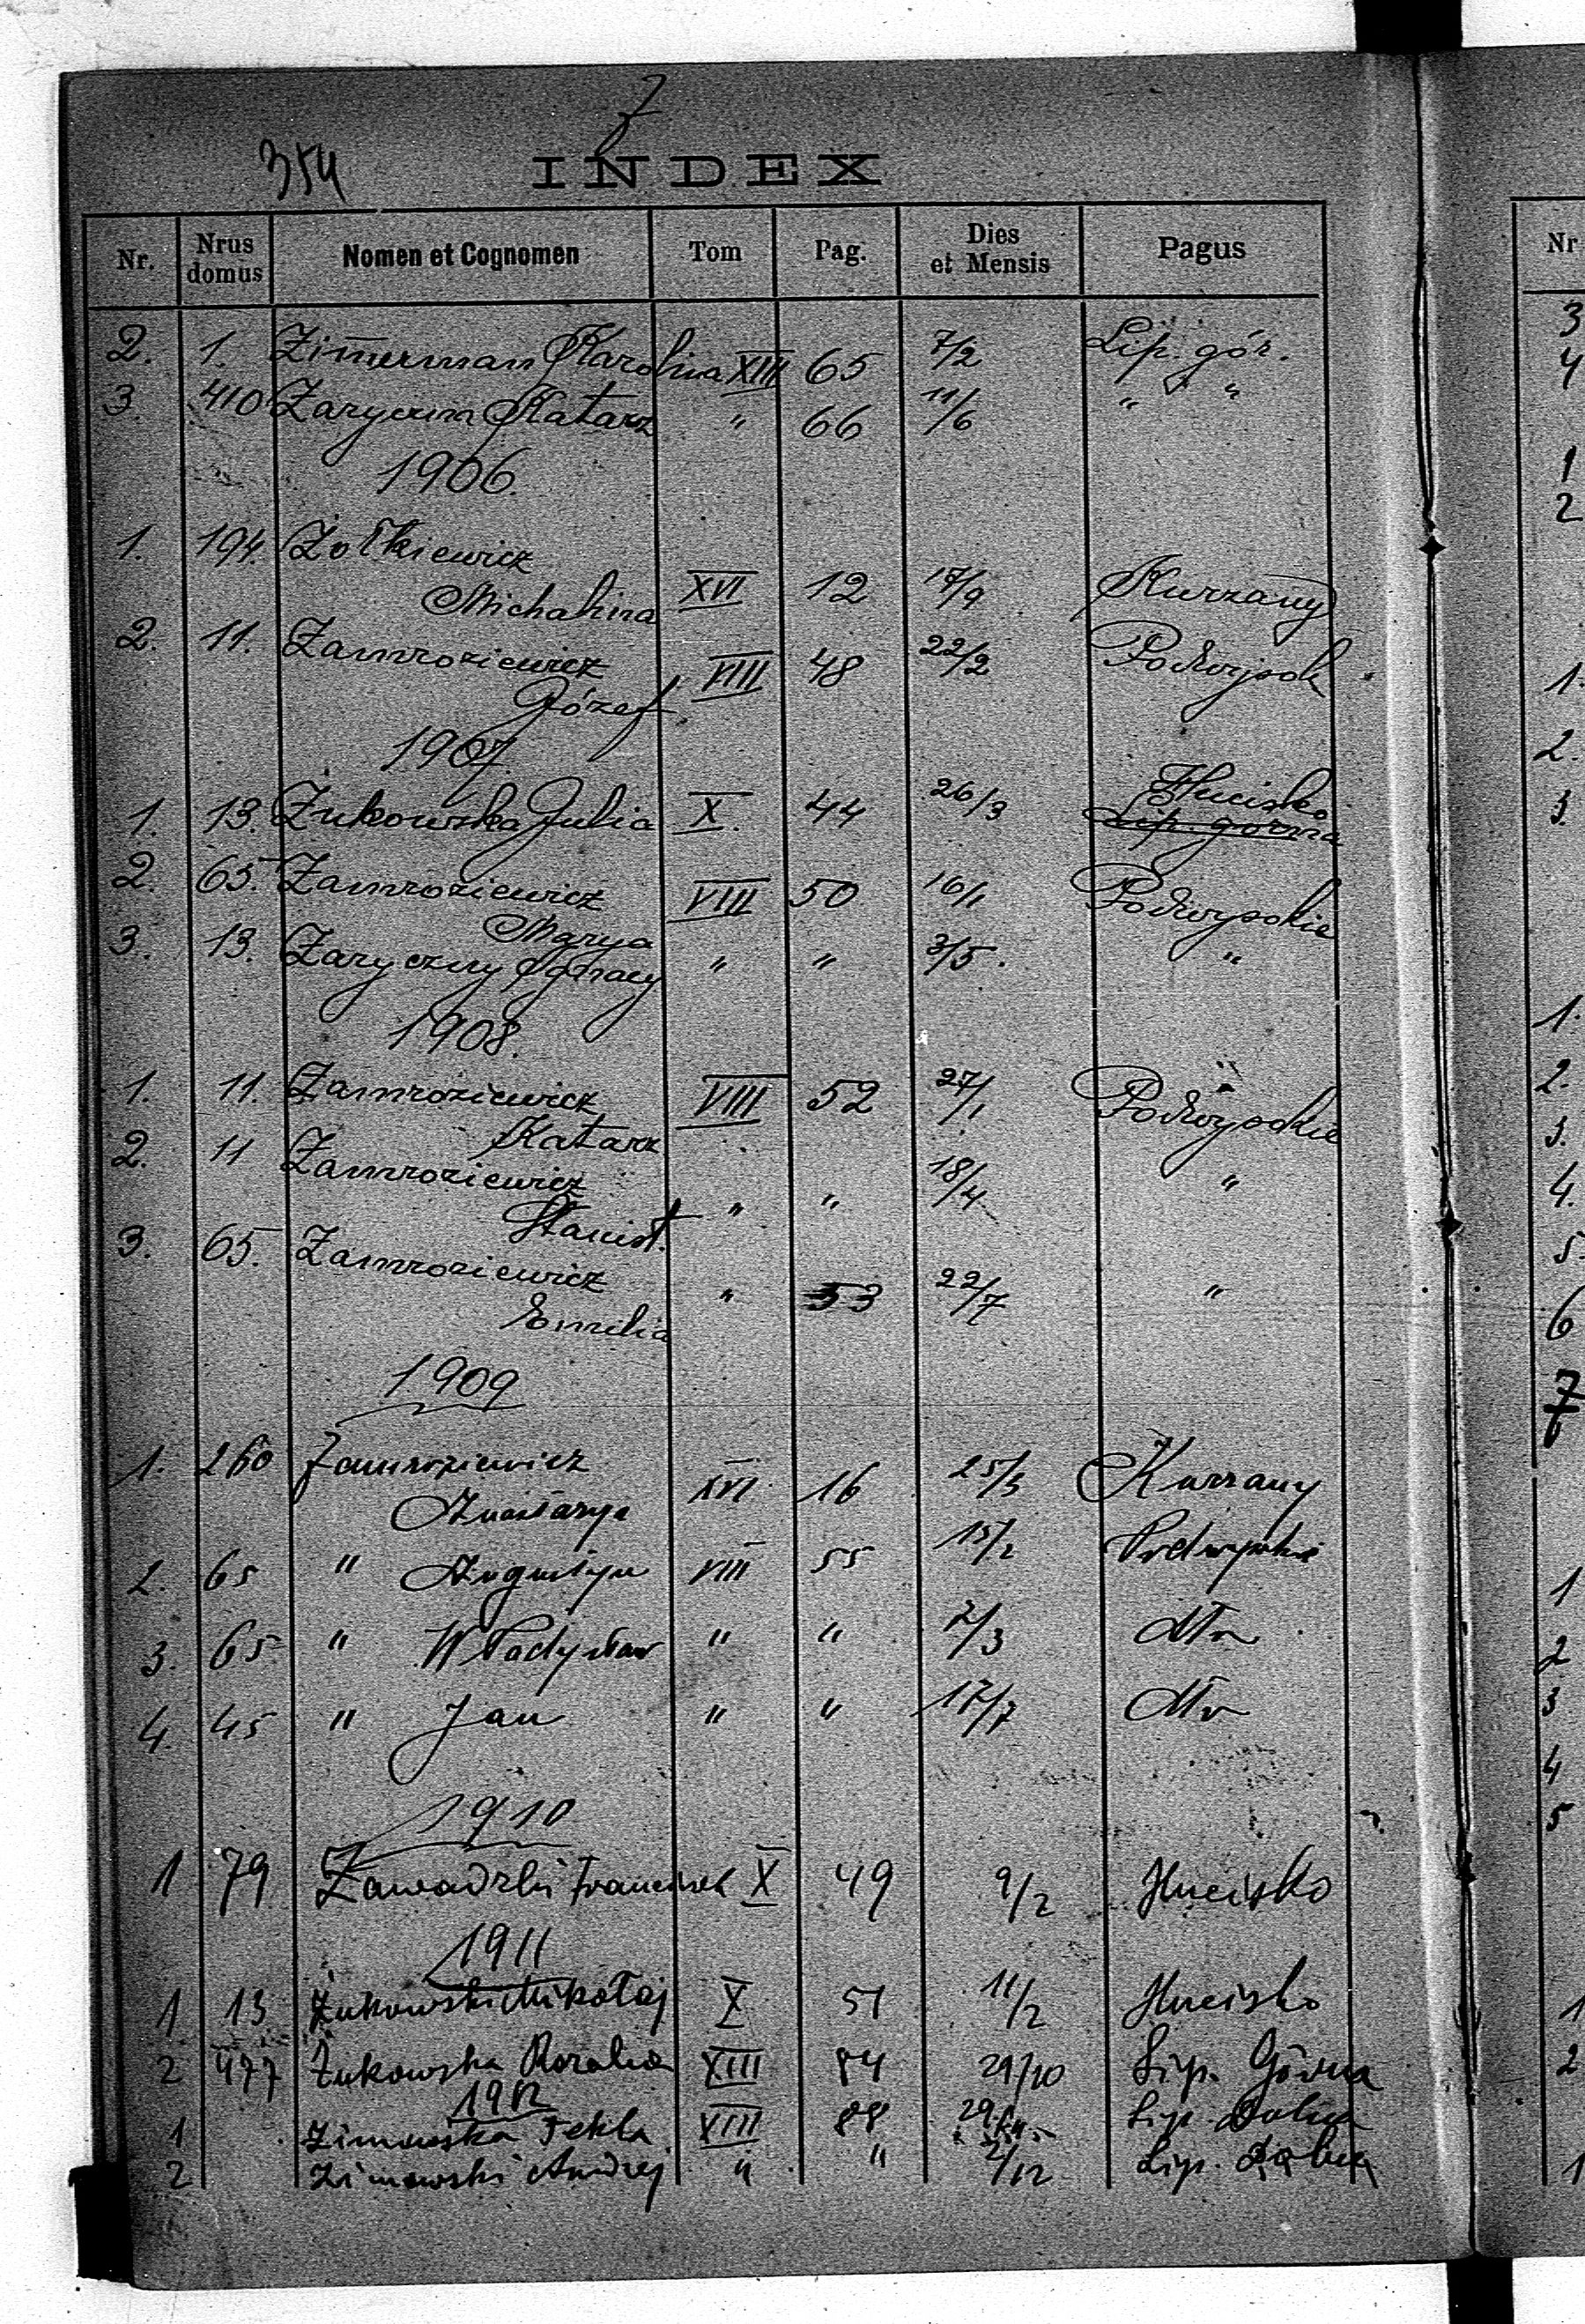 Z
354
INDEX
Nr. Nrus domus Nomen et Cognomen Tom Pag. Dies et Mensis Pagus
2. 1. Zim̄erman Karolina XIII 65 7/2 Lip. gór.
3. 410 Zaryczna Katarz " 66 11/6 " "
1906.
1. 194. Żołkiewicz
Michalina XVI 12 17/9 Kurzany
2. 11. Zamroziewicz
Józef VIII 48 22/2 Podwysok
1907.
1. 13. Żukowska Julia X. 44 26/3 Hucisko Lip. gorna
2. 65. Zamroziewicz VIII 50 16/1 Podwysokie
Marya
3. 13. Zaryczny Ignacy " " 3/5. "
1908.
1. 11. Zamroziewicz VIII 52 27/1 Podwysokie
Katarz
2. 11 Zamroziewicz
Stanisł. " " 18/4 "
3. 65. Zamroziewicz
Emilia " 53 22/7 "
1909
1. 260 Zamroziewicz
Anastazya XVI 16 25/3 Kurzany
2. 65 " Augustyn VIII 55 15/2 Podwysokie
3. 65 " Władysław " " 7/3 dtto
4. 45 " Jan " " 17/7 dtto
1910
1 79 Zawadzki Franciszek X 49 9/2 Hucisko
1911
1 13 Żukowski Mikołaj X 51 11/2 Hucisko
2 477 Żukowska Rozalia XIII 84 29/10 Lip. Górna
1912
1 Zimowska Tekla XIII 88 Lip. Dolna
2 Zimowski Andrzej " " 2/12 Lip. Dolna
Nr
3
4
1
2
1.
2.
3.
1.
2.
3.
4.
5.
6
7
1
2
3
4
5
1
2
1